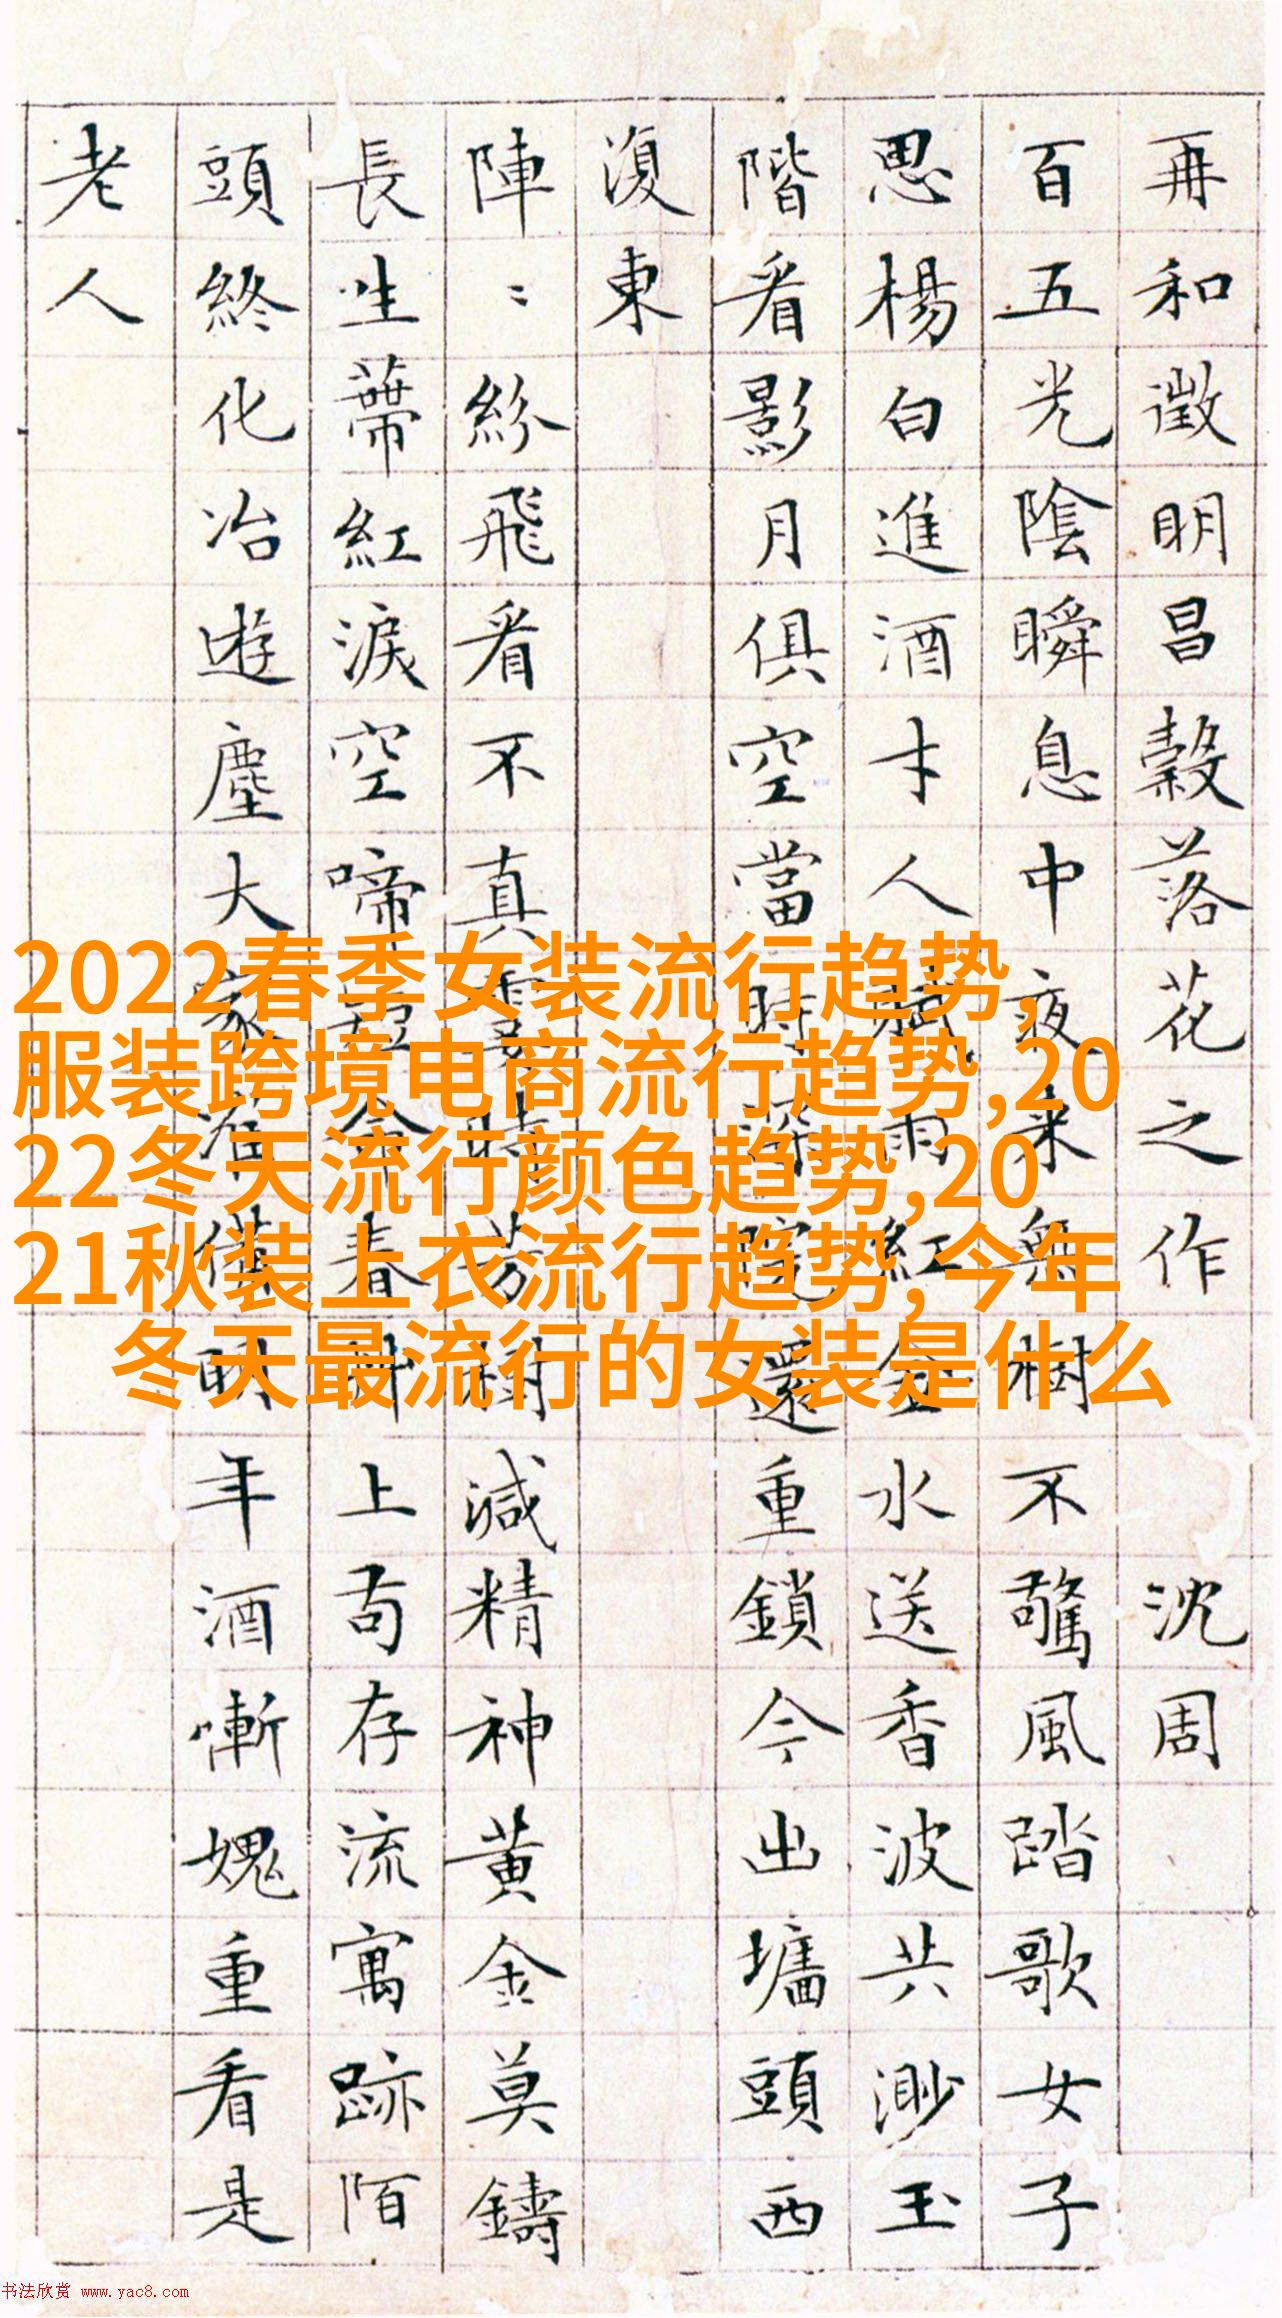 再和徵明昌穀落花之作 沈周
百五光陰瞬息中夜来無樹不驚風踏歌女子
思楊白進酒才人賦雨紅金水送香波共渺玉
階看影月俱空當時深院還重鎖今出墻頭西
復東
陣〻紛飛看不真霎時芳樹減精神黄金莫鑄
長生蔕紅淚空啼短命春艸上苟存流寓跡陌
頭終化冶遊塵大家准儗明年酒慚媿重看是
老人
2022春季女装流行趋势,
服装跨境电商流行趋势,20
22冬天流行颜色趋势,20
21秋装上衣流行趋势,今年
冬天最流行的女装是什么
书法欣赏 www.yac8.com